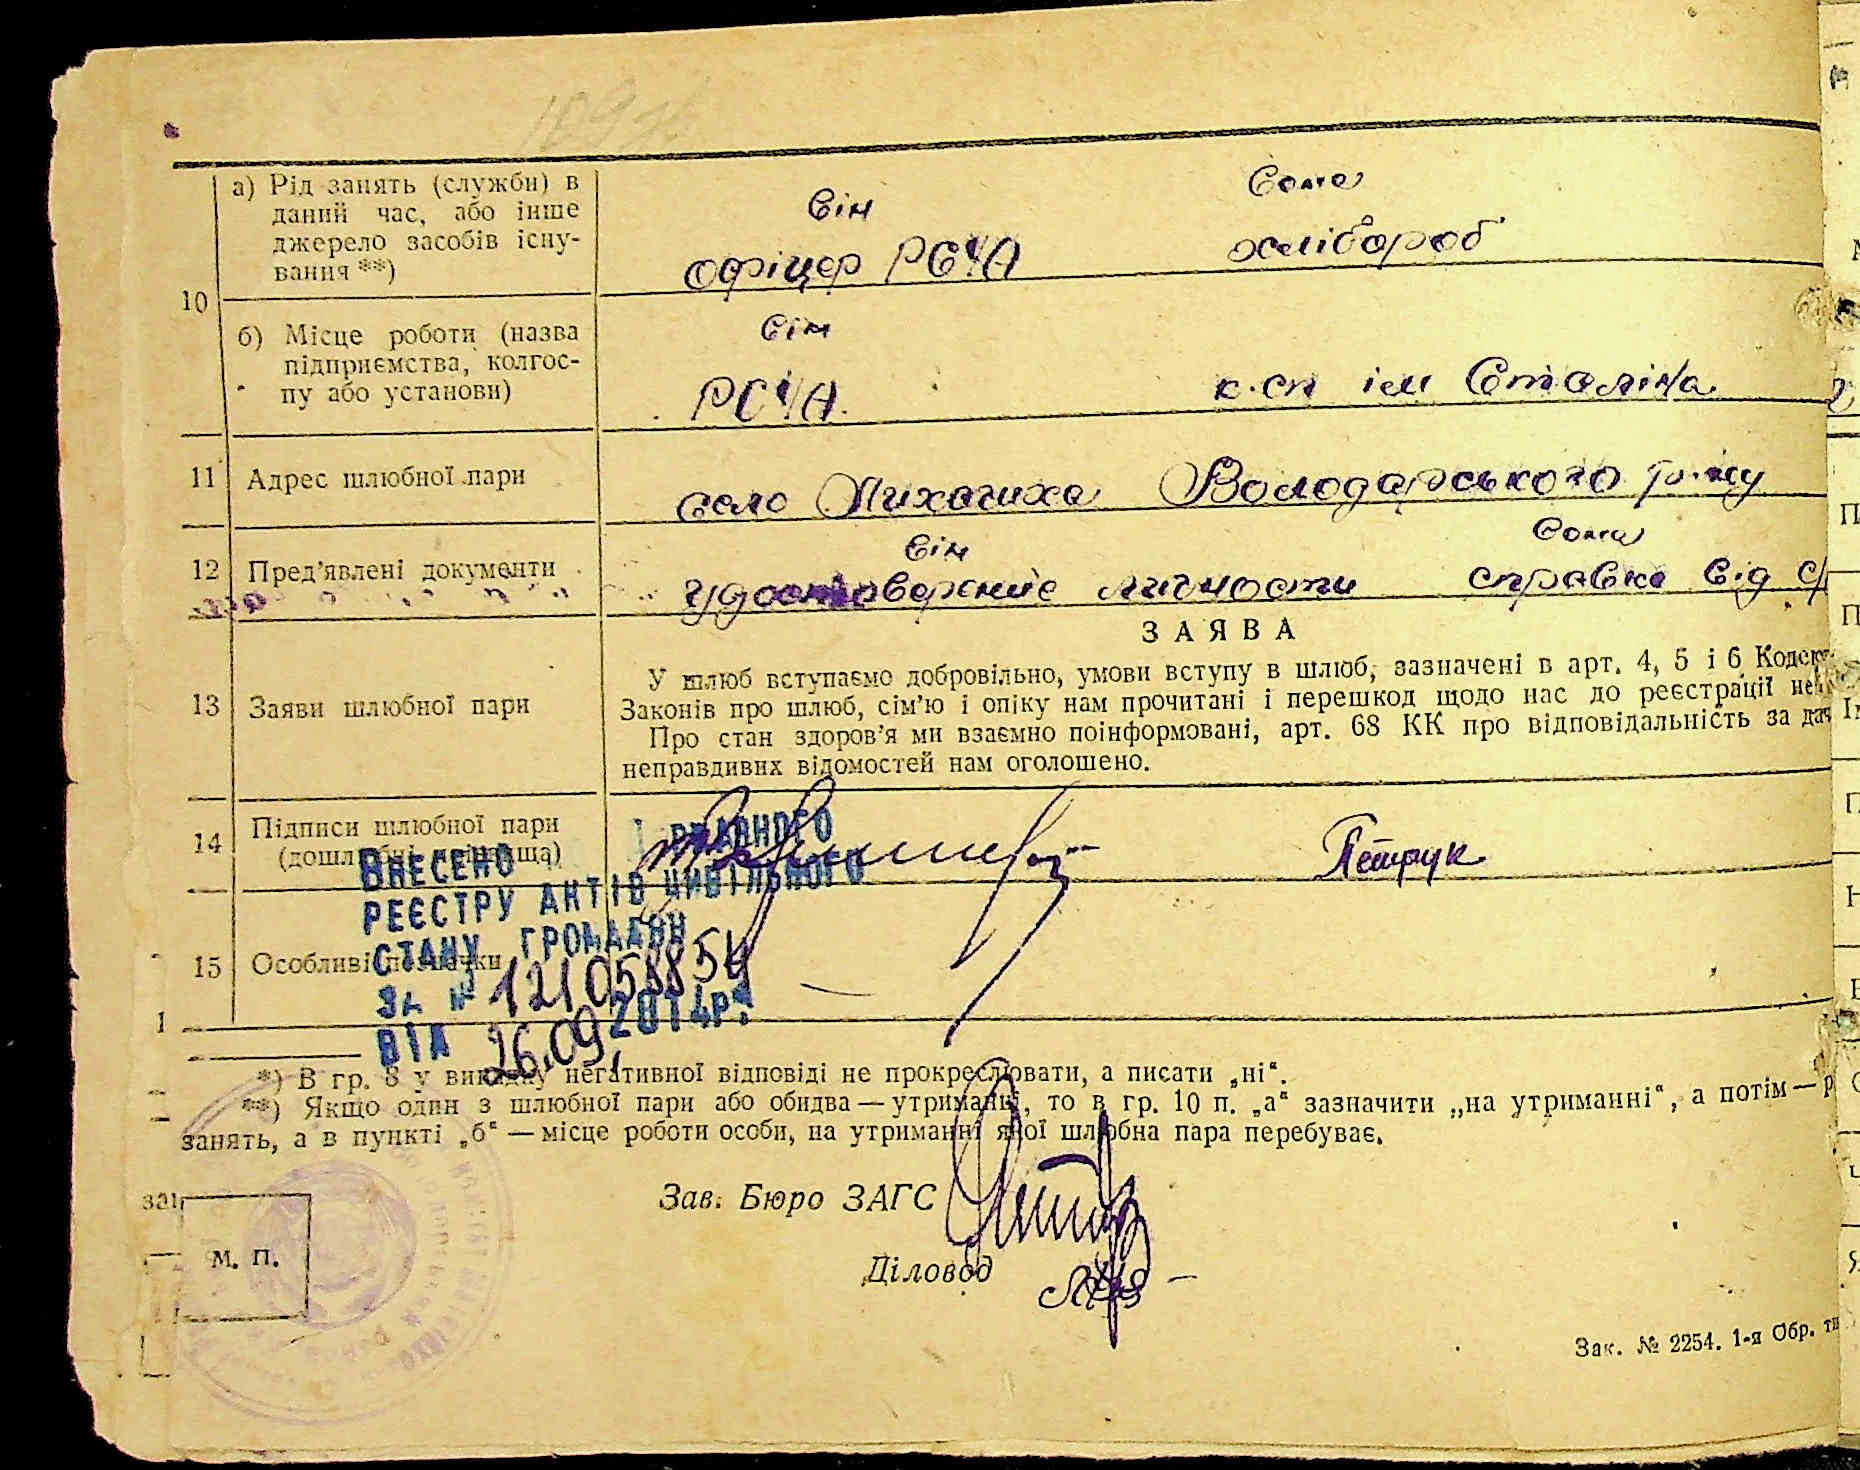 а) Рід занять (служби) в
даний час, або інше
джерело засобів існу-
вання **)
Він
офіцер РСЧА
хлібороб
10
б) Місце роботи (назва
підприємства, колгос-
пу або установи)
Він
РСЧА.
к.сп ім Сталіна
11 Адрес шлюбної пари
село Лихачиха Володарського р-ну
Він
12 Пред'явлені документи
удостоверение личности справка від с/
ЗАЯВА
13 Заяви шлюбної пари
У шлюб вступаємо добровільно, умови вступу в шлюб, зазначені в арт. 4, 5 і 6
Законів про шлюб, сім'ю і опіку нам прочитані і перешкод щодо нас до реєстрації
Про стан здоров'я ми взаємно поінформовані, арт. 68 КК про відповідальність за
неправдивих відомостей нам оголошено.
14 Підписи шлюбної пари
Петрук
ВНЕСЕНО
РЕЄСТРУ АКТІВ ЦИВІЛЬНОГО
СТАНУ ГРОМАДЯН
15 Особливі
ЗА №
ВІД 26.09. 2014р.
*) В гр. 8 у випадку негативної відповіді не прокреслювати, а писати „ні“.
**) Якщо один з шлюбної пари або обидва — утриманці, то в гр. 10 п. „а“ зазначити „на утриманні“, а потім —
занять, а в пункті „б“ — місце роботи особи, на утриманні якої шлюбна пара перебуває.
Зав. Бюро ЗАГС
м. п.
Діловод
Зак. № 2254. 1-я Обр.